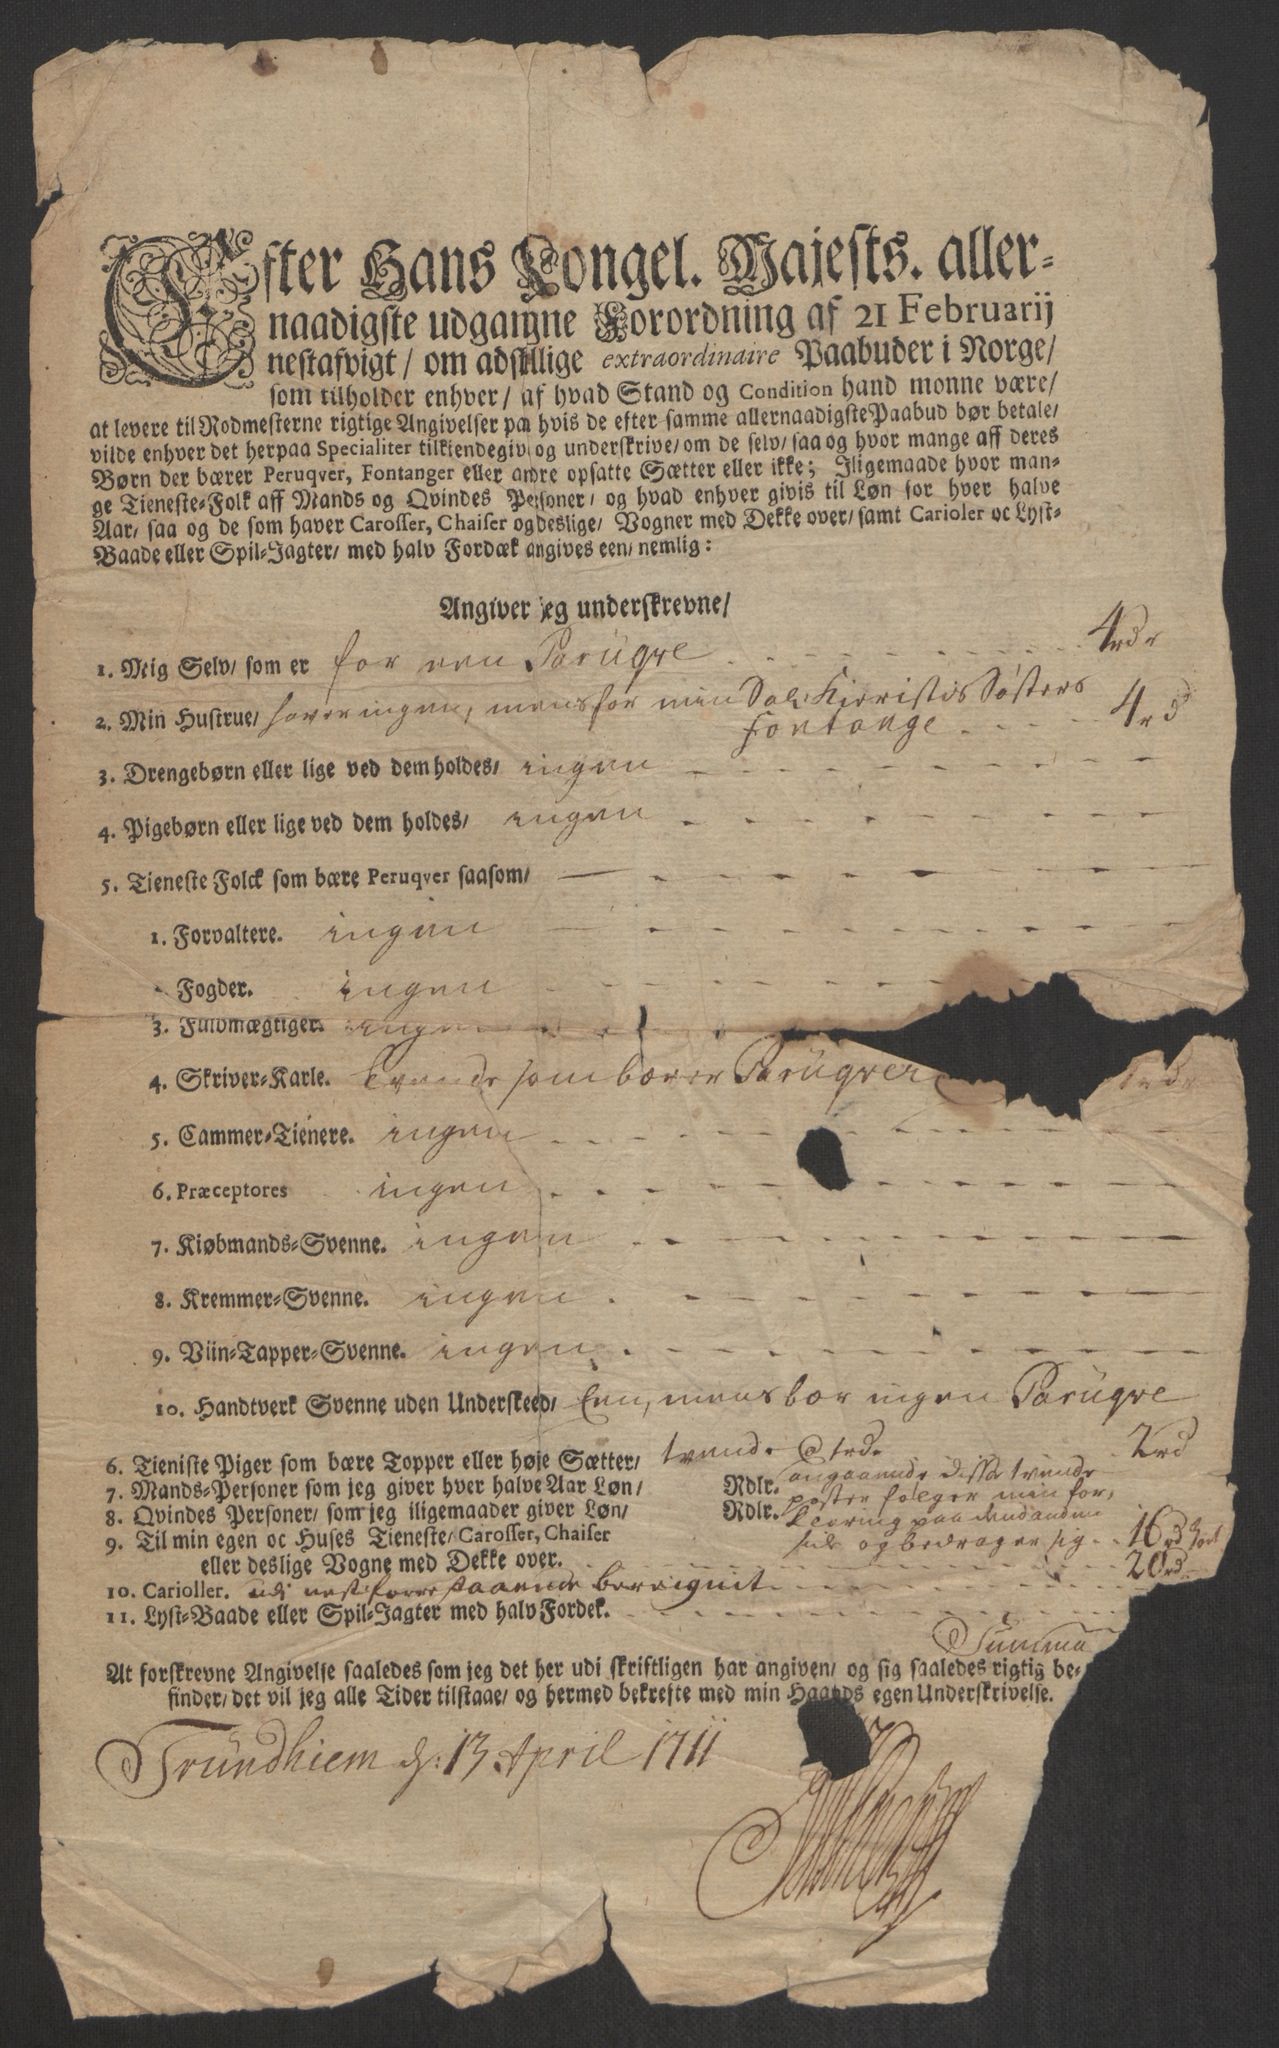 Efter Hans Kongel. Majests. aller-
naadigste udgangne Forordning af 21 Februarij
nestafvigt/ om adskillige extraordinaire Paabuder i Norge/
som tilholder enhver/ af hvad Stand og Condition hand monne være/
at levere til Rodmesterne rigtige Angivelser paa hvis de efter samme allernaadigste Paabud bør betale/
vilde enhver det herpaa Specialiter tilkiendegiv og underskrive/ om de selv/ saa og hvor mange aff deres
Børn der bærer Peruqver, Fontanger eller andre opsatte Sætter eller ikke; Iligemaade hvor man-
ge Tieneste-Folk aff Mands og Qvindes Personer/ og hvad enhver givis til Løn for hver halve
Aar/ saa og de som haver Carosser, Chaiser og deslige/ Vogner med Dekke over/ samt Carioler oc Lyst-
Baade eller Spil-Jagter/ med halv Fordæk angives een/ nemlig:
Angiver jeg underskrevne/
1. Mig Selv/ som er for een Paruqve 4 rdr
2. Min Hustrue/ haver ingen, mens for min Sal. Kieristis Søsters
Fontange 4 rd
3. Drengebørn eller lige ved dem holdes/ ingen
4. Pigebørn eller lige ved dem holdes/ ingen
5. Tieneste Folck som bære Peruqver saasom/
1. Forvaltere. ingen
Fogder. ingen
3. Fuldmægtiger. ingen
4. Skriver-Karle. Trende som bærer Paruqver rdr
5. Cammer-Tienere. ingen
6. Præceptores ingen
7. Kiøbmands-Svenne. ingen
8. Kremmer-Svenne. ingen
9. Viin-Tapper-Svenne. ingen
10. Handtverk Svenne uden Underskeed/ Een, mens bær ingen Paruqve
6. Tieniste Piger som bære Topper eller høje Sætter/ tvende 2 rd
7. Mands-Personer som jeg giver hver halve Aar Løn/ Rdlr. angaaende disse tvende
8. Qvindes Personer/ som jeg iligemaader giver Løn/ Rdlr. poster følger min for,
klaring paa den anden
9. Til min egen oc Huses Tieneste/ Carosser, Chaiser side og bedrager sig 16 rd
eller deslige Vogne med Dekke over. 20 rd
10. Carioller. udi nestforestaaende beregnit
11. Lyst-Baade eller Spil-Jagter med halv Fordek.
Summa
At forskrevne Angivelse saaledes som jeg det her udi skriftligen har angiven/ og sig saaledes rigtig be-
finder/ det vil jeg alle Tider tilstaae/ og hermed bekrefte med min Haands egen Underskrivelse.
Trundhiem d: 13 April 1711